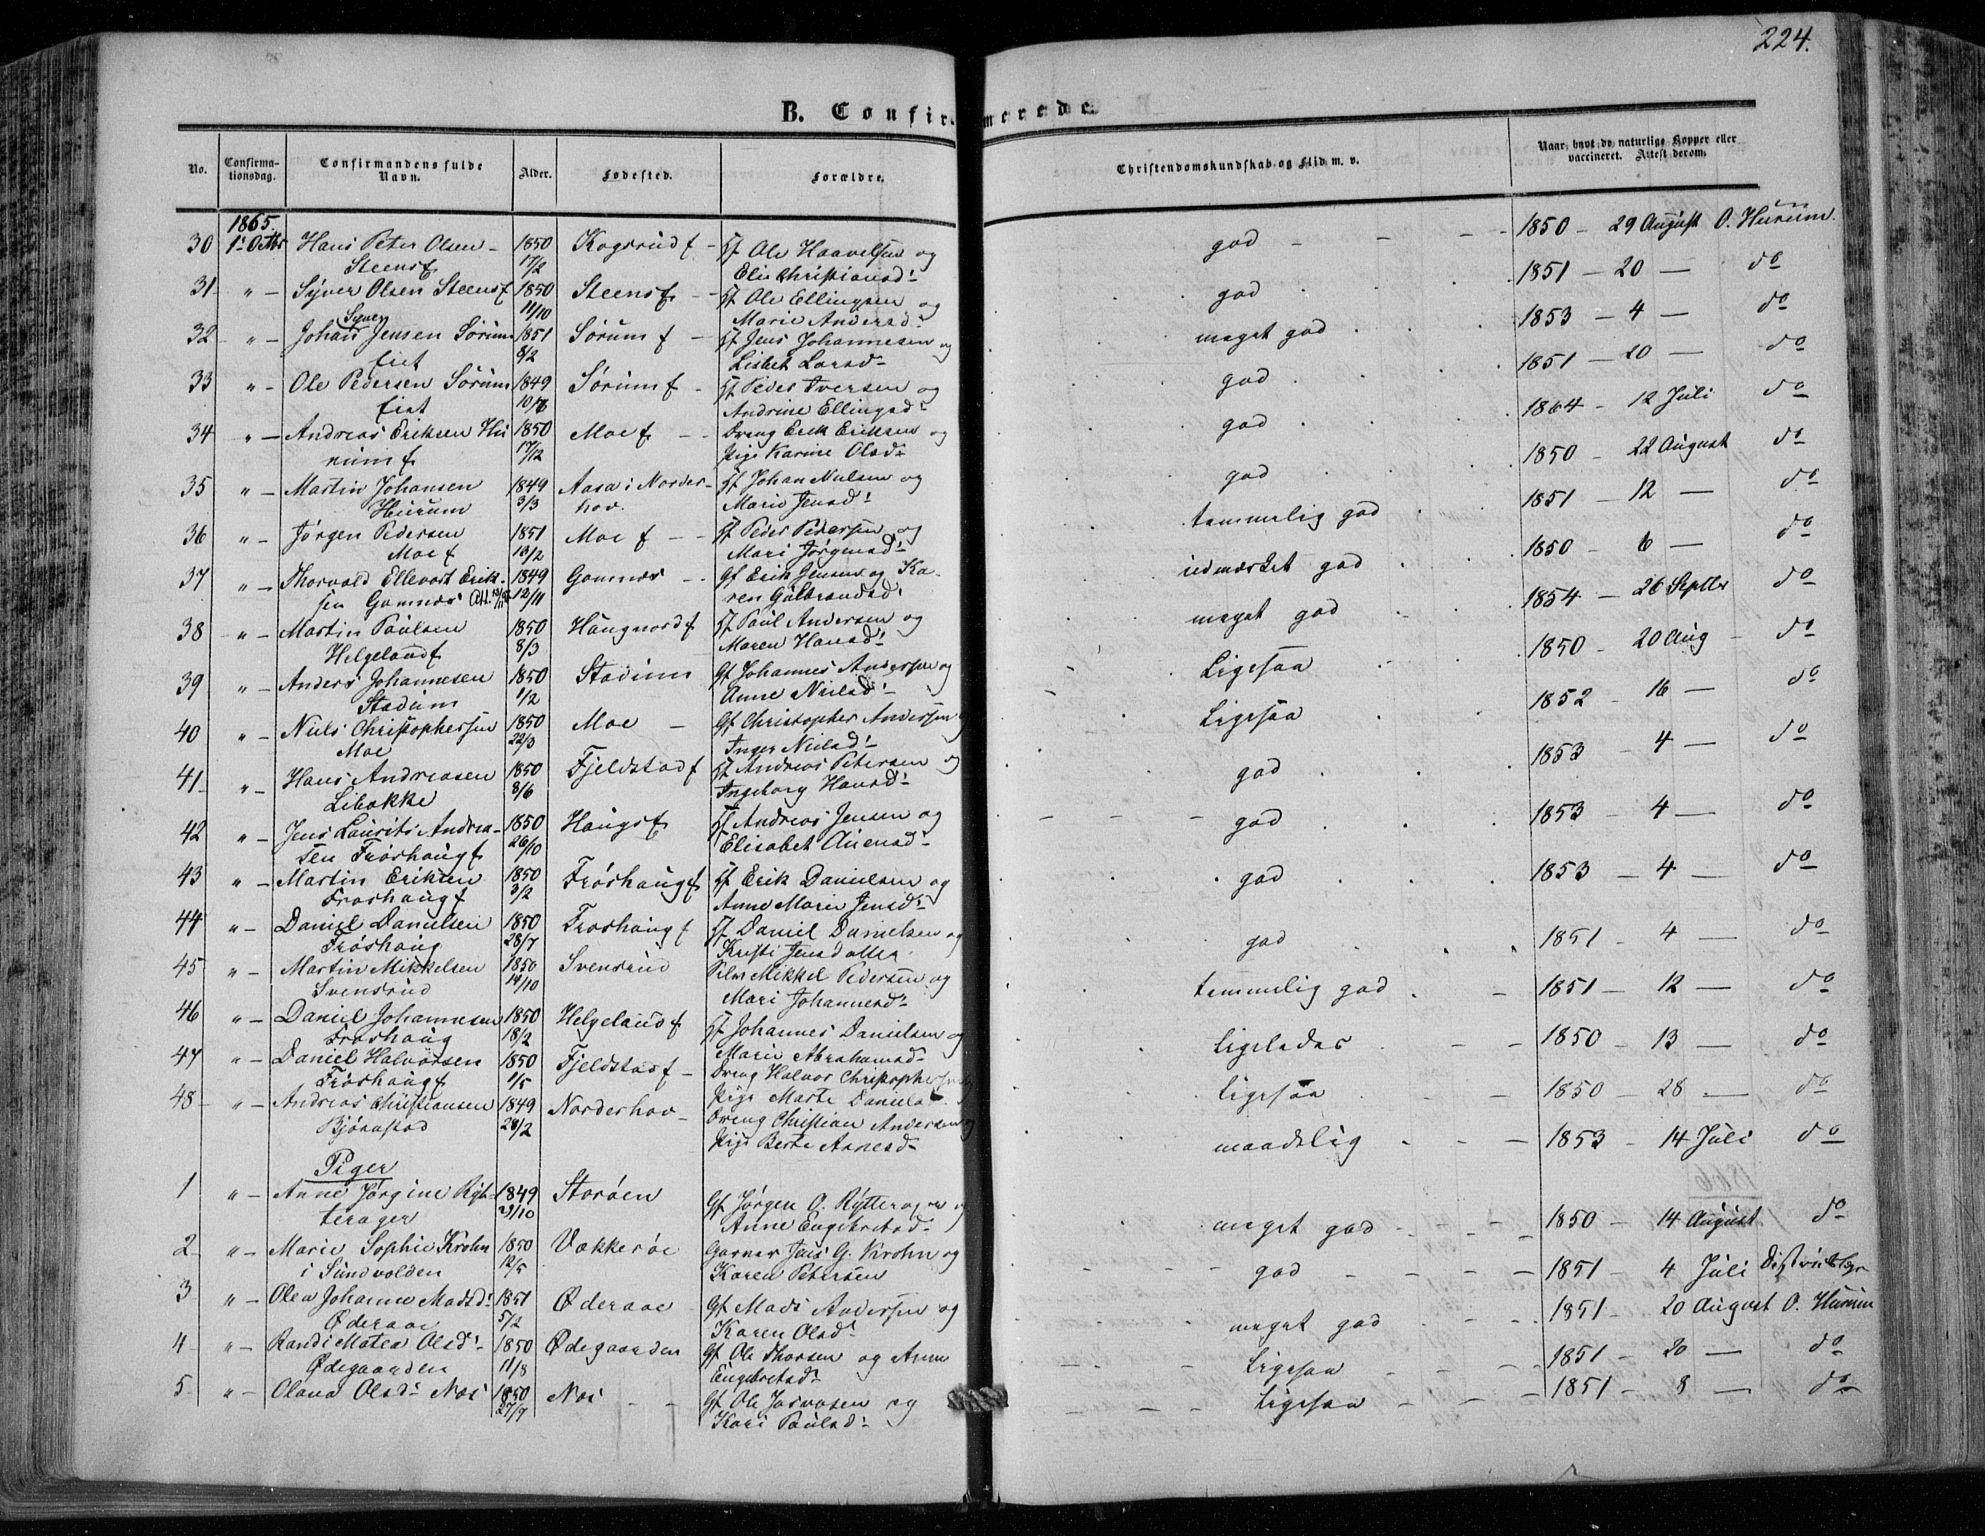 224.
B. Confirmerede
No.
Confirmationsdag.
Confirmandens fulde Navn.
Alder.
Fødested.
Forældre.
Christendomskundskab og Flid m. v.
Naar havt de naturlige Kopper eller vaccineret. Attest derom.
1865
30 1ste Octbr Hans Peter Olsen 1850 Kogsrud f Hf Ole Haavelsen og god 1850 – 29 August O. Hurum.
Steensf 17/2 Elie Christiansd!
31 " – Syver Olsen Steensf 1850 Steensf Hf Ole Ellingsen og god 1851 – 20 — do
11/10 Marie Andersd!
32 " – Johan Syver Jensen Sørum 1851 Sørum f Hf Jens Johannesen og meget god 1853 – 4 — do
eiet 8/2 Lisbet Larsd!
33 " – Ole Pedersen Sørum 1849 Sørum f Hf Peder Iversen og god 1851 – 20 — do
eiet Andrine Ellingsd!
34 " – Andreas Eriksen Hu 1850 Moe f Dreng Erik Eriksen og god 1864 – 12 Juli do
rum f 17/12 Pige Karine Olsd!
35 " – Martin Johansen 1849 Aasa i Norder- Hf Johan Nielsen og god 1850 – 22 August do
Hurum 3/3 hov. Marie Jensd!
36 " – Jørgen Pedersen 1851 Moe f Hf Peder Pedersen og temmelig god 1851 – 12 — do
Moe f 13/2 Mari Jørgensd!
37 " – Thorvald Ellevart Erik- 1849 Gomnæs Gf Erik Jensen og Ka- udmærket god 1850 – 6 — do
sen Gomnæs Att. 12/11 ren Gulbrandsd!
38 " – Martin Paulsen 1850 Haugnord f Hf Paul Andersen og meget god 1854 – 26 Septbr do
Helgeland f 8/3 Maren Hansd!
39 " – Anders Johannesen 1850 Stadum Gf Johannes Andersen og Ligesaa 1850 – 20 Aug do
Stadum 1/2 Anne Nielsd!
40 " – Niels Christophersen 1850 Moe Gf Christopher Andersen Ligesaa 1852 – 16 — do
Moe 22/3 Inger Nielsd!
41 " – Hans Andreasen 1850 Fjeldstad f Hf Andreas Petersen og god 1853 – 4 — do
Libakke 8/6 Ingeborg Hansd!
42 " – Jens Laurits Andrea- 1850 Haugsf Hf Andreas Jensen og god 1853 – 4 — do
sen Frøshaug f 26/10 Elisabet
43 " – Martin Eriksen 1850 Frøshaug f Hf Erik Danielsen og god 1853 – 4 — do
Frøshaug f 3/2 Anne Marie Jensd!
44 " – Daniel Danielsen 1850 Frøshaug f Hf Daniel Danielsen og god 1851 – 4 — do
Frøshaug 28/7 Kristi Jensdatter
45 " – Martin Mikkelsen 1850 Svensrud Mikkel Pedersen og temmelig god 1851 – 12 — do
Svensrud 14/10 Mari Johannesd!
46 " – Daniel Johannesen 1850 Helgeland f Hf Johannes Danielsen og Ligeledes 1850 – 13 — do
Frøshaug 18/2 Marie Abrahamsd!
47 " – Daniel Halvorsen 1850 Fjeldstad f Dreng Halvor Christophersen Ligesaa 1850 – 28 — do
Frøshaug f 1/5 Pige Marte Danielsd
48 " – Andreas Christiansen 1849 Norderhov Dreng Christian Andersen og maadelig 1853 – 14 Juli do
Bjørnstad 28/2 Pige Berte Arnesd!
Piger
1 " – Anne Jørgine Ryt- 1849 Storøen Gf Jørgen O. Rytterager og meget god 1850 – 14 August do
terager 23/10 Anne Engebretsd!
2 " – Marie Sophie Krohn 1850 Vækkerøe Garver Jens G. Krohn og god 1851 – 4 Juli
i Sundvolden 12/5 Karen Petersen
3 " – Olea Johanne Madsd! 1851 Øderaae Gf Mads Andersen og meget god 1851 – 20 August O. Hurum
Øderaae 5/2 Karen Olsd!
4 " – Randi Matea Olsd! 1850 Ødegaarden Gf Ole Thorsen og Anne Ligesaa 1851 – 20 — do
Ødegaarden 11/8 Engebretsd!
5 " – Olava Olsd! Næs 1850 Næs Gf Ole og Ligesaa 1851 – 8 — do
27/9 Kari Paulsd!